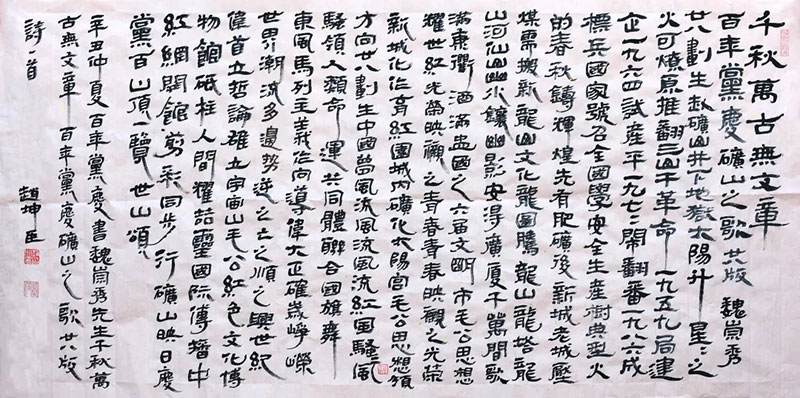 千秋萬古無文章
百年黨慶礦山之歌廿版 魏崇秀
廿八劃生赴礦山井下地獄太陽升 星星之
火可燎原推翻三山干革命一九五九局建
企一九六四試産平一九七二鬧翻番一九八六成
標兵國家號召全國學安全生産樹典型火
的春秋鑄輝煌先有肥礦後新城老城壓
煤需搬新龍山文化龍圖騰龍山龍塔龍
山河仙山小鎮幽影安得廣厦千萬間歌
滿東衢酒滿盅國之六百文明市毛公思想
耀世紅光榮映觀之青春青春映觀之光榮
新城化作育紅園城内礦化太陽宮毛公思想領
方向廿八劃生中國夢風流風流紅國騷風
騷領人類命運共同體聯合國旗舞
東風馬列主義作向導偉大正確歲崢嶸
世界潮流多邊勢逆之亡之順之興世紀
偉首立哲論確立宇宙山毛公紅色文化傳
物館砥柱人間耀喆靈國際傳播中
紅網開館剪彩同步行礦山映日慶
黨百山頂一覽世山頌
詩一首
辛丑仲夏百年黨慶書魏崇秀先生千秋萬
古無文章百年黨慶礦山之歌廿八版
趙坤臣